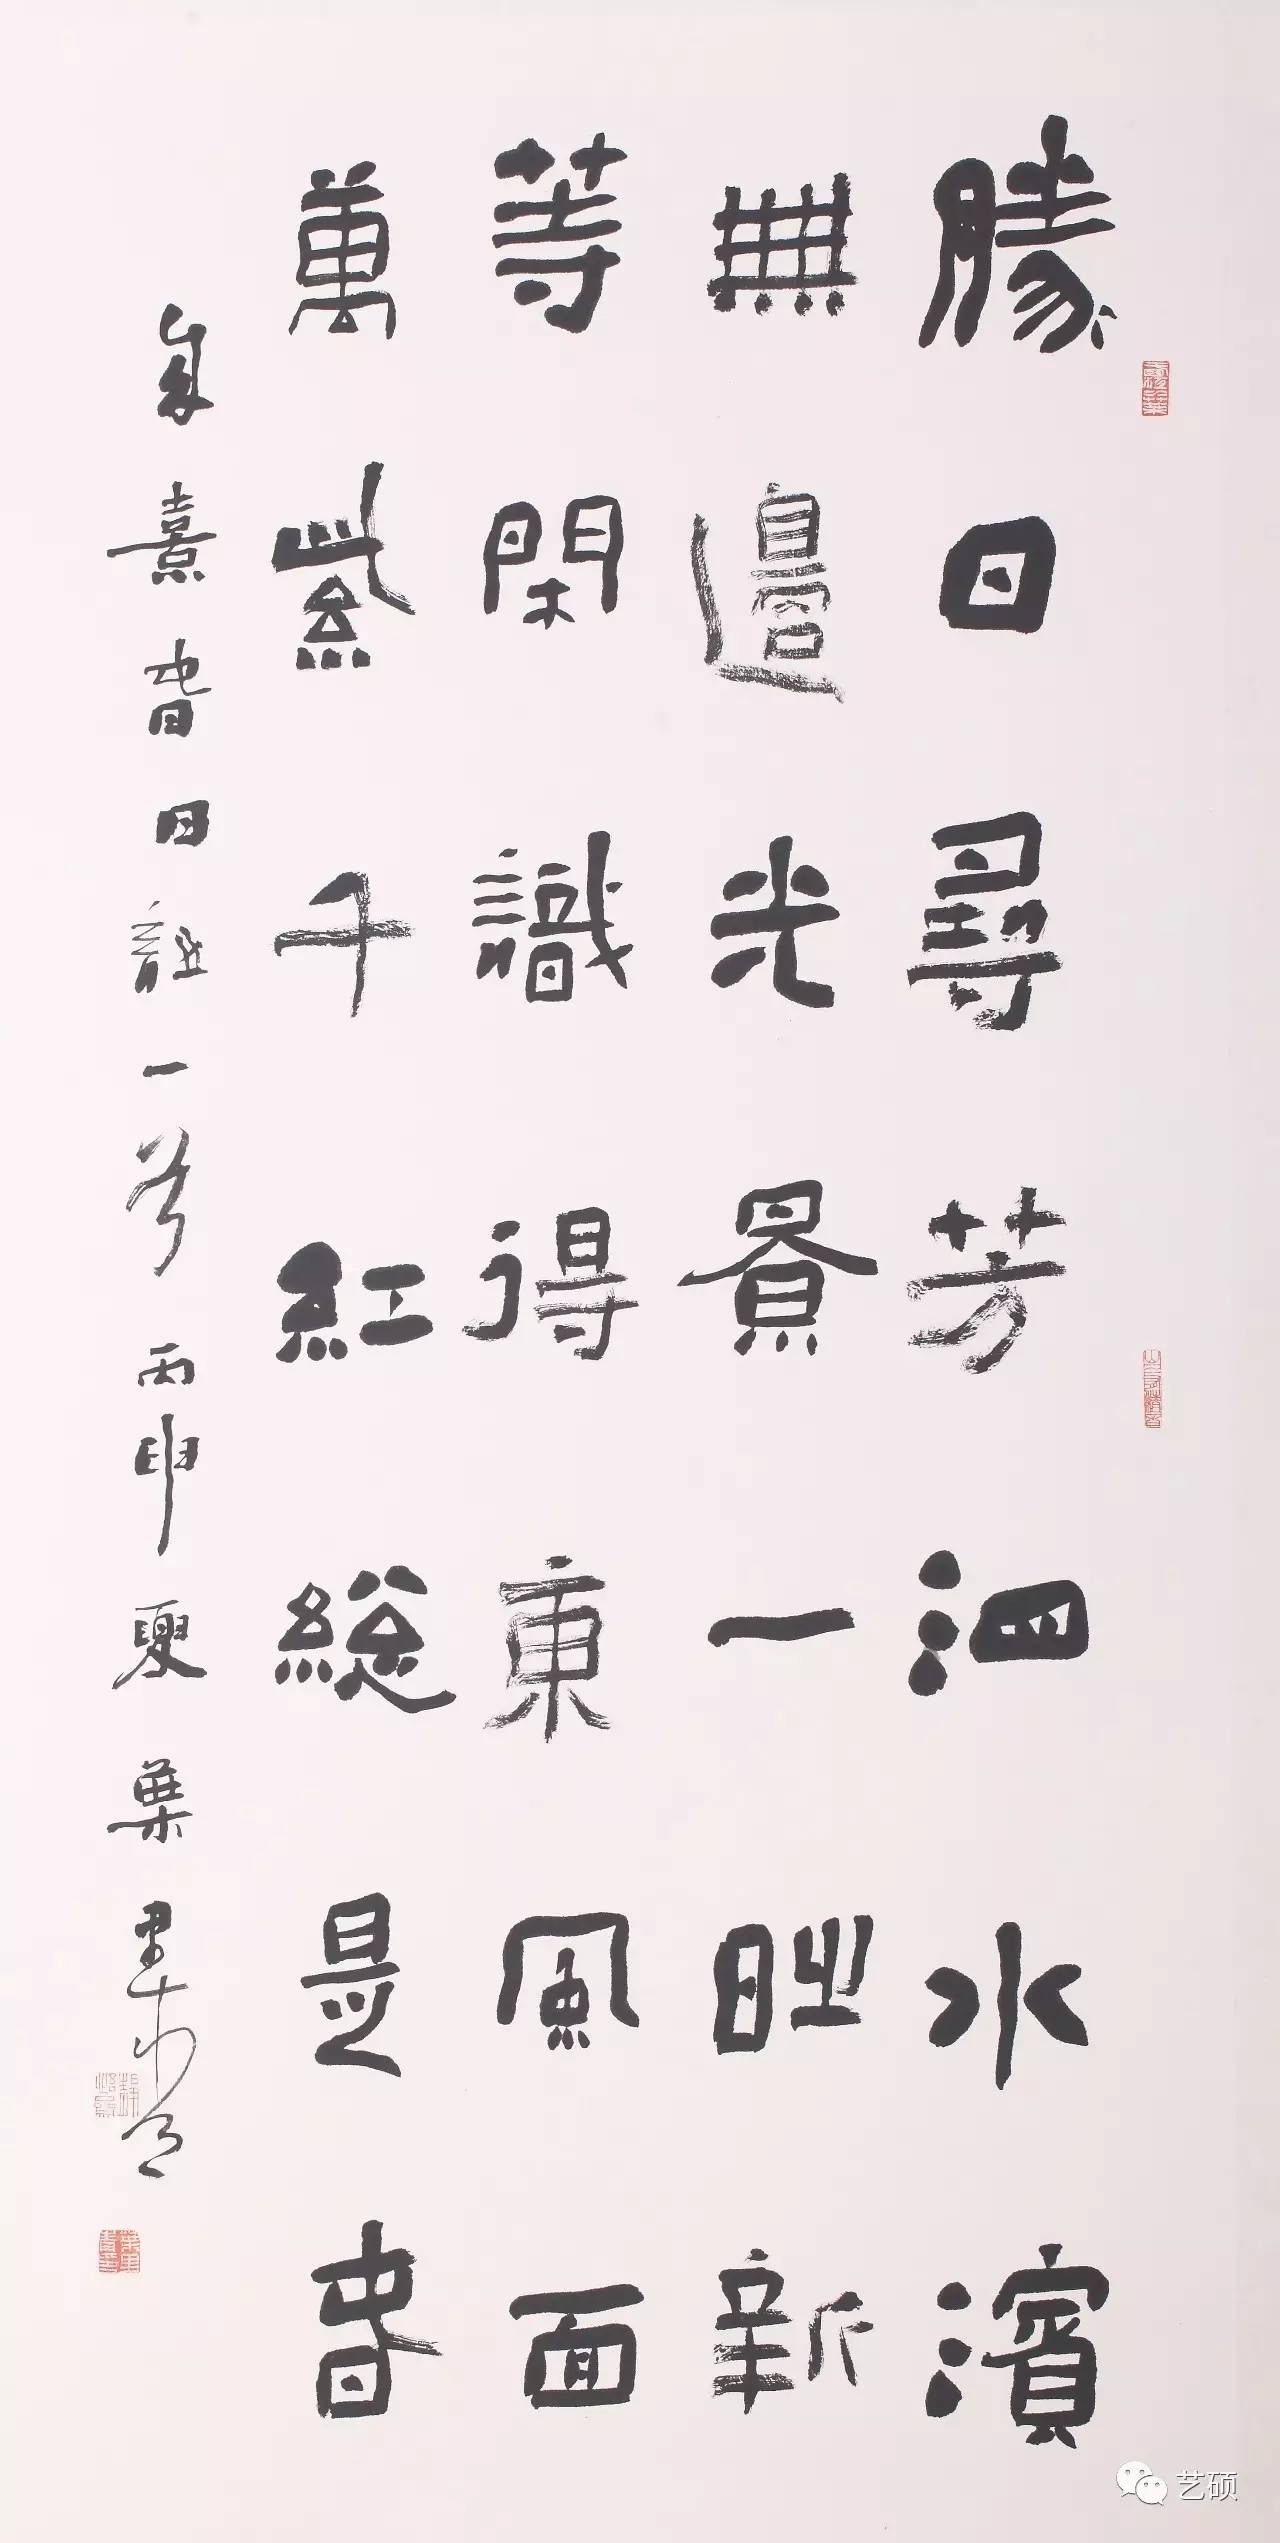 勝日尋芳泗水濱
無邊光景一時新
等閑識得東風面
萬紫千紅総是春
朱熹春日詩一首丙申夏葉
艺硕